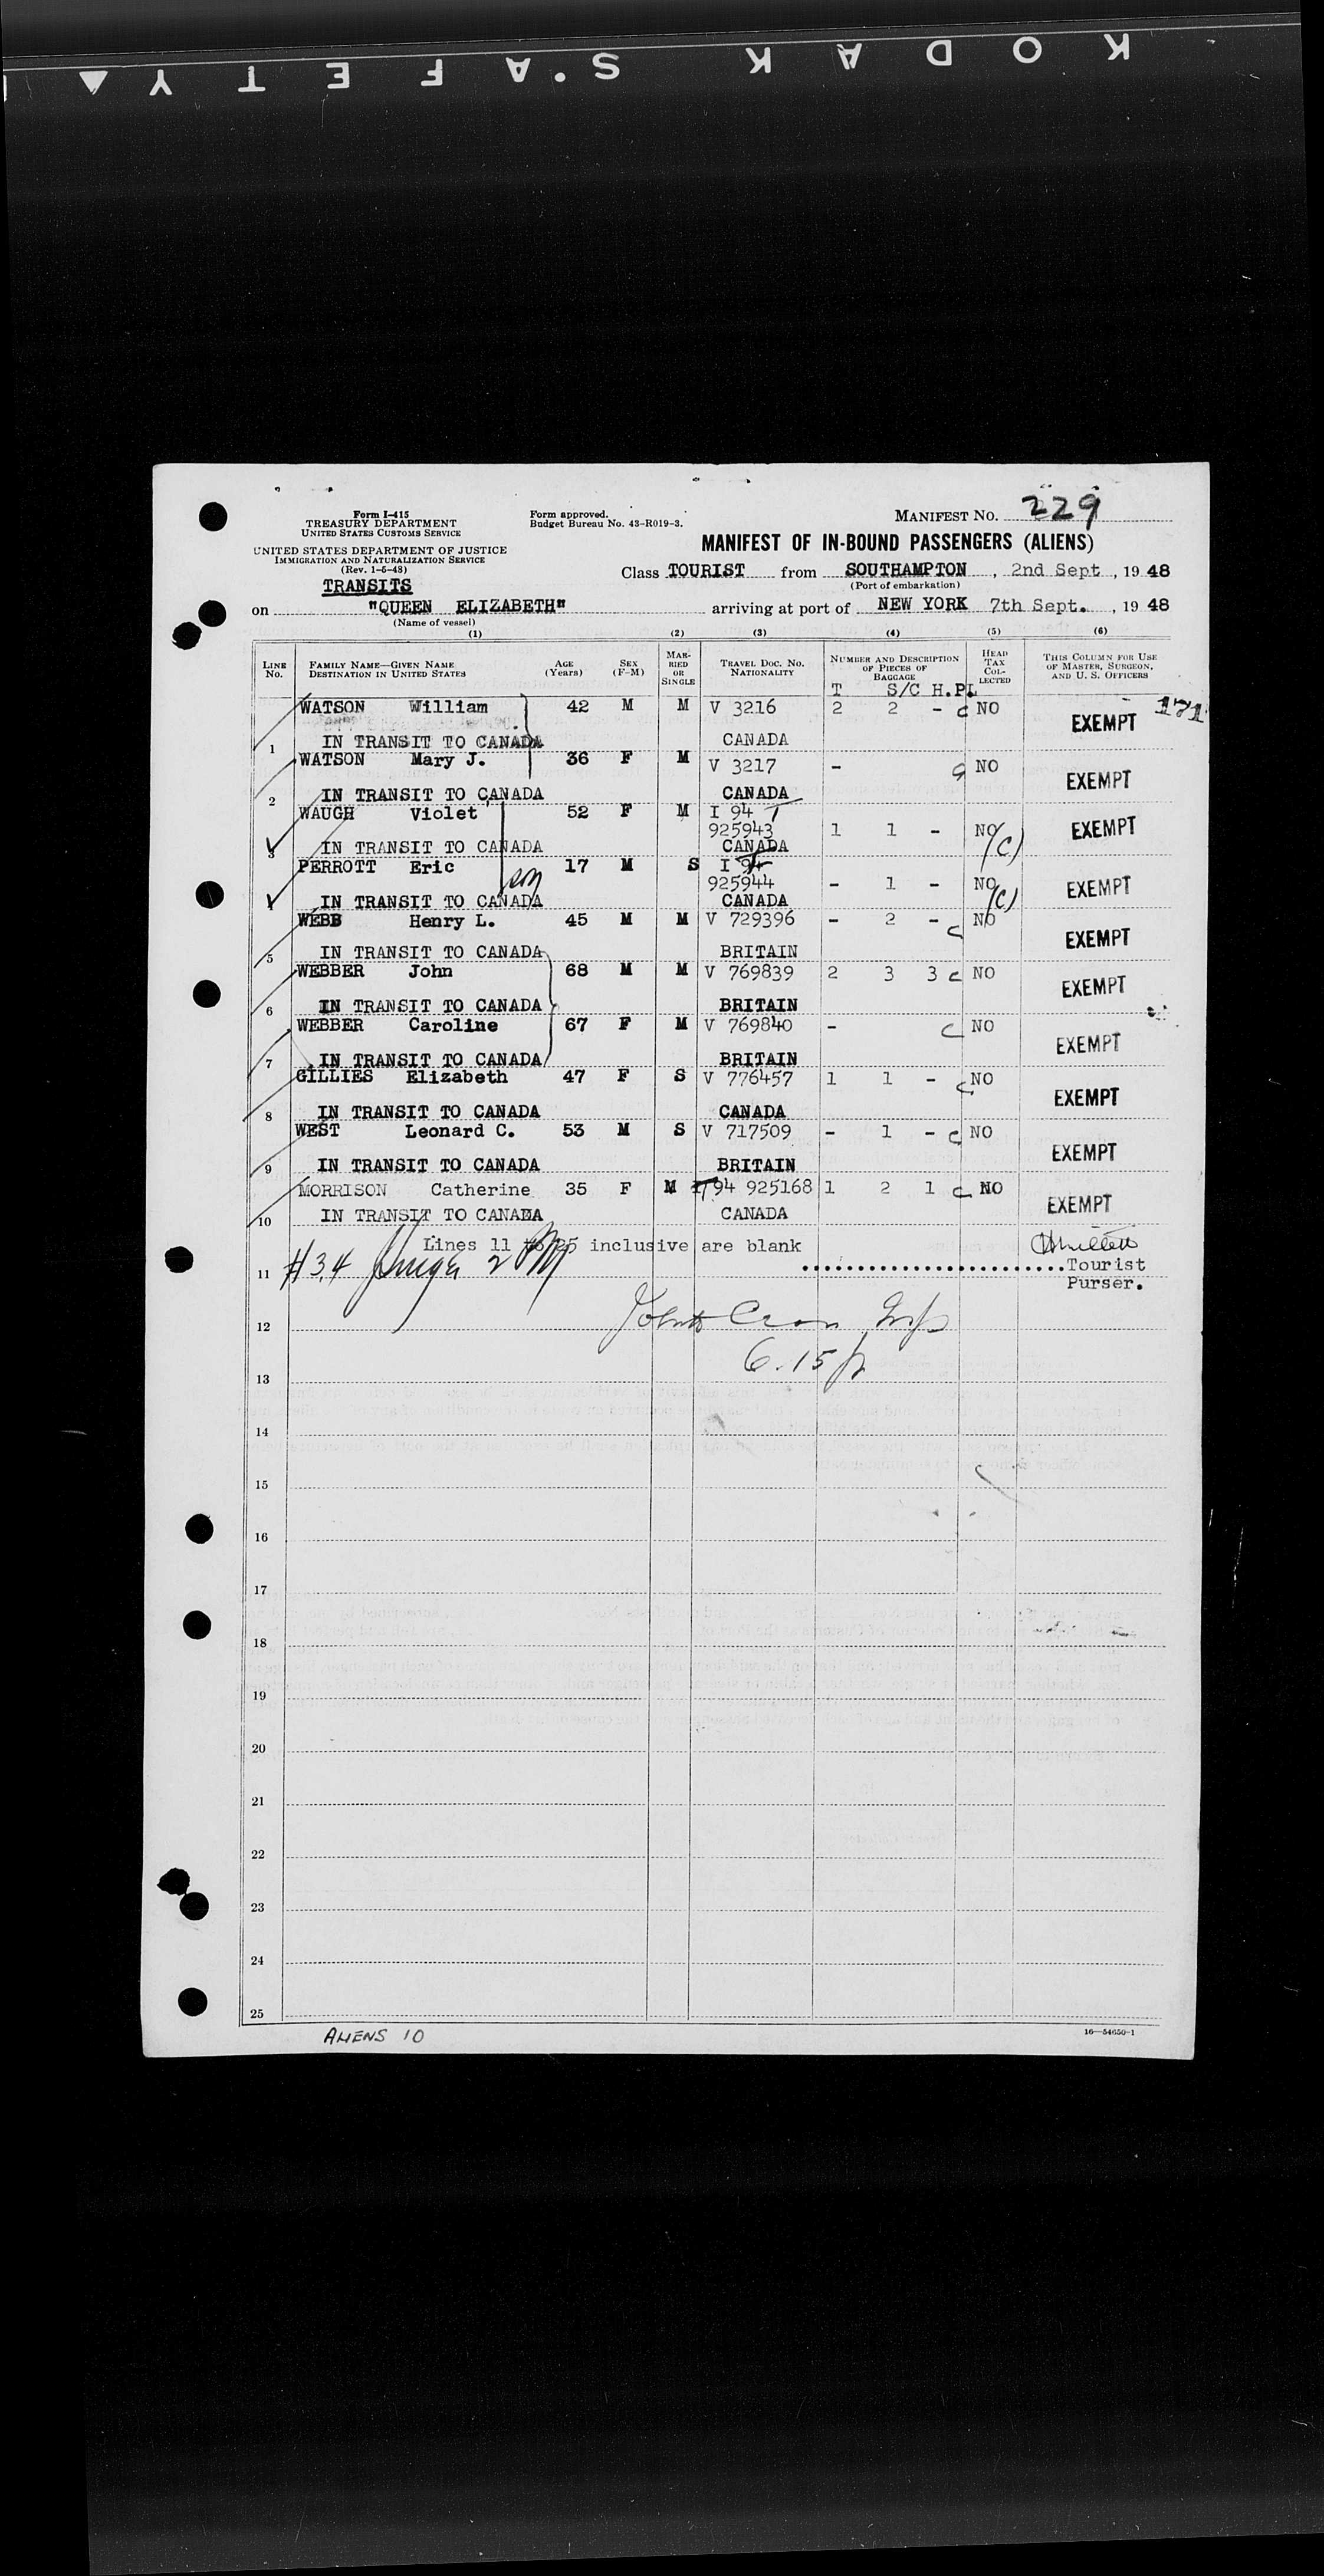 KODAK S.AFETY
Form I-415
TREASURY DEPARTMENT
UNITED STATES CUSTOMS SERVICE
UNITED STATES DEPARTMENT OF JUSTICE
IMMIGRATION AND NATURALIZATION SERVICE
(Rev. 1-5-48)
TRANSITS
Form approved.
Budget Bureau No. 43-R019-3.
MANIFEST NO. 229
MANIFEST OF IN-BOUND PASSENGERS (ALIENS)
Class TOURIST from SOUTHAMPTON, 2nd Sept, 19 48
(Port of embarkation)
on "QUEEN ELIZABETH" arriving at port of NEW YORK 7th Sept., 19 48
(Name of vessel)
(1) (2) (3) (4) (5) (6)
LINE No. FAMILY NAME—GIVEN NAME DESTINATION IN UNITED STATES AGE (Years) SEX (F-M) MARRIED OR SINGLE TRAVEL DOC. NO. NATIONALITY NUMBER AND DESCRIPTION OF PIECES OF BAGGAGE HEAD TAX COLLECTED THIS COLUMN FOR USE OF MASTER, SURGEON, AND U. S. OFFICERS
T S/C H.PL
WATSON William 42 M M V 3216 2 2 - c NO EXEMPT 171
1 IN TRANSIT TO CANADA CANADA
WATSON Mary J. 36 F M V 3217 - NO EXEMPT
2 IN TRANSIT TO CANADA CANADA
WAUGH Violet 52 F M I 94 T
925943 1 1 - NO (C) EXEMPT
3 IN TRANSIT TO CANADA CANADA
PERROTT Eric son 17 M S I 94 T
925944 - 1 - NO (C) EXEMPT
4 IN TRANSIT TO CANADA CANADA
WEBB Henry L. 45 M M V 729396 - 2 - c NO EXEMPT
5 IN TRANSIT TO CANADA BRITAIN
WEBBER John 68 M M V 769839 2 3 3 c NO EXEMPT
6 IN TRANSIT TO CANADA BRITAIN
WEBBER Caroline 67 F M V 769840 - c NO EXEMPT
7 IN TRANSIT TO CANADA BRITAIN
GILLIES Elizabeth 47 F S V 776457 1 1 - c NO EXEMPT
8 IN TRANSIT TO CANADA CANADA
WEST Leonard C. 53 M S V 717509 - 1 - c NO EXEMPT
9 IN TRANSIT TO CANADA BRITAIN
MORRISON Catherine 35 F M 94 925168 1 2 1 c NO EXEMPT
10 IN TRANSIT TO CANADA CANADA
Lines 11 to 25 inclusive are blank
11 #34 Tourist
Purser.
12
6.15 p
13
14
15
16
17
18
19
20
21
22
23
24
25
ALIENS 10
16—54650-1